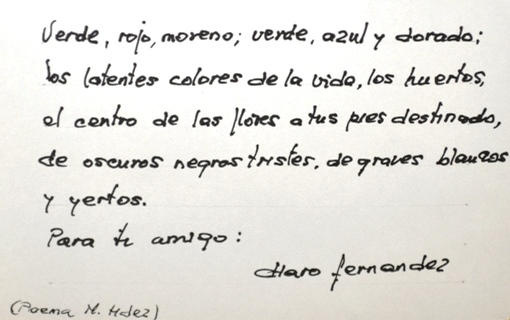 Verde, rojo, moreno; verde, azul y dorado;
los latentes colores de la vida, los huertos,
el centro de las flores a tus pies destinado,
de oscuros negros tristes, de graves blancos
y yertos.
Para ti amigo:
Haro fernandez
(Poema M. Hdez)